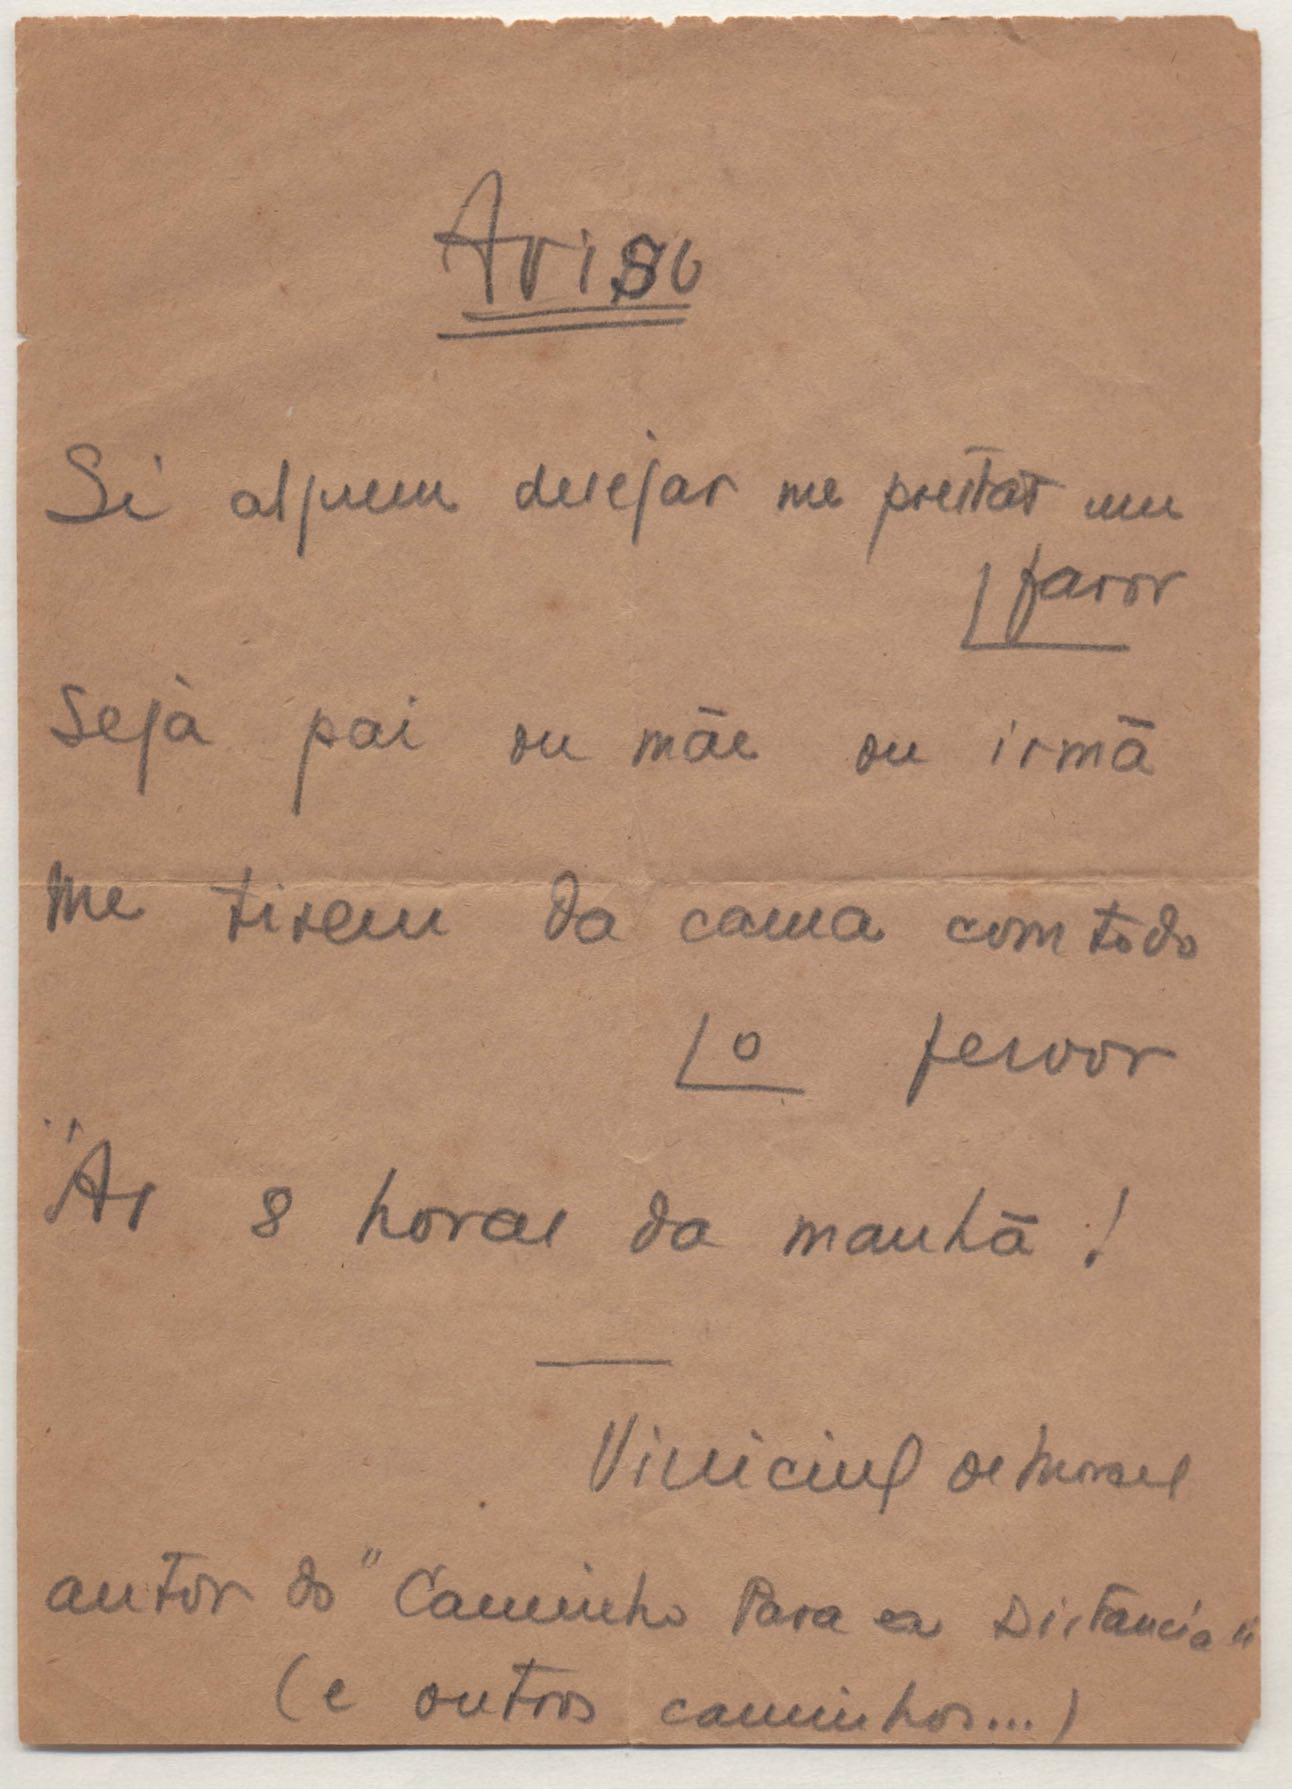 Aviso
Si alguem desejar me prestar um
favor
Seja pai ou mãe ou irmã
Me tirem da cama com todo
o fervor
Às 8 horas da manhã!
Vinicius de Moraes
autor do "Caminho Para a Distancia"
(e outros caminhos...)